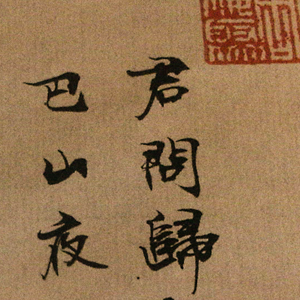 君問歸
巴山夜